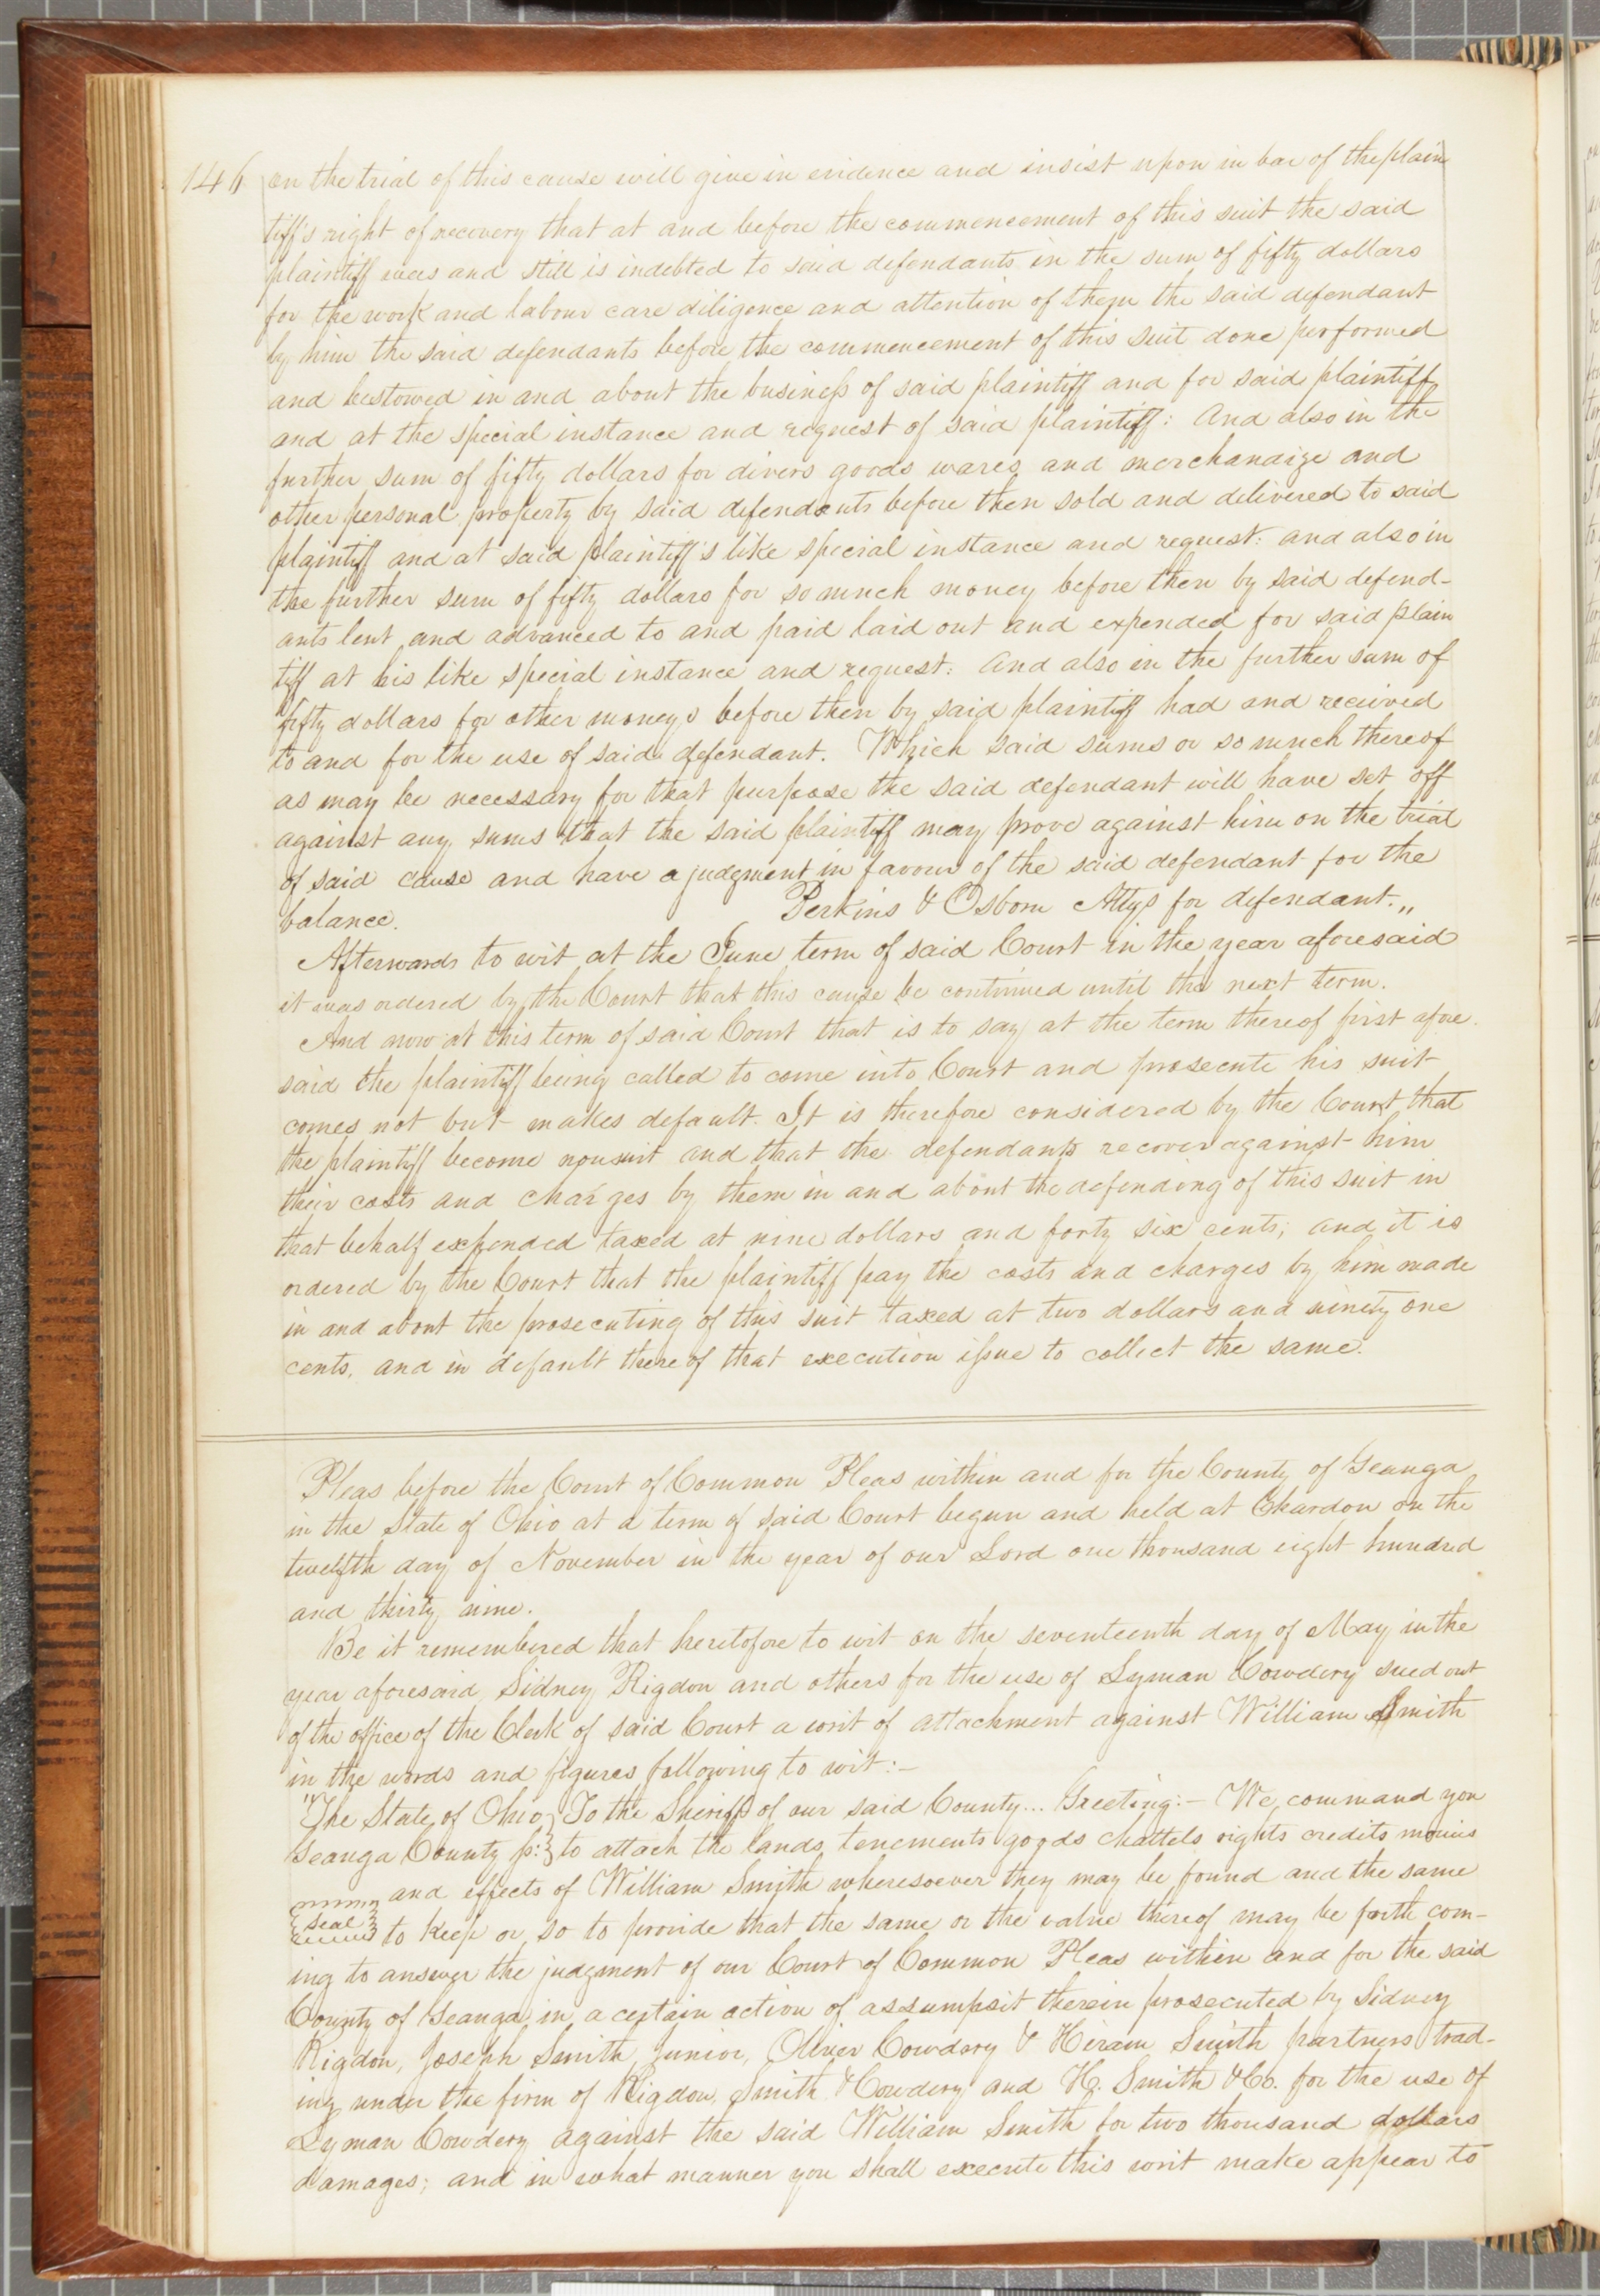 146 on the trial of this cause will give in evidence and insist upon in bar of the plain
tiff's right of recovery that at and before the commencement of this suit the said
plaintiff was and still is indebted to said defendants in the sum of fifty dollars
for the work and labour care diligence and attention of them the said defendant
by him the said defendants before the commencement of this suit done performed
and bestowed in and about the business of said plaintiff and for said plaintiff
and at the special instance and request of said plaintiff: And also in the
further sum of fifty dollars for divers goods wares and merchandize and
other personal property by said defendants before then sold and delivered to said
plaintiff and at said plaintiff's like special instance and request: and also in
the further sum of fifty dollars for so much money before then by said defend-
ants lent and advanced to and paid laid out and expended for said plain
tiff at his like special instance and request: And also in the further sum of
fifty dollars for other moneys before then by said plaintiff had and received
to and for the use of said defendant. Which said sums or so much thereof
as may be necessary for that purpose the said defendant will have set off
against any sums that the said plaintiff may prove against him on the trial
of said cause and have a judgment in favour of the said defendant for the
balance. Perkins & Osborn Attys for defendant."
Afterwards to wit at the June term of said Court in the year aforesaid
it was ordered by the Court that this cause be continued until the next term.
And now at this term of said Court that is to say at the term thereof first afore
said the plaintiff being called to come into Court and prosecute his suit
comes not but makes default. It is therefore considered by the Court that
the plaintiff become nonsuit and that the defendants recover against him
their costs and charges by them in and about the defending of this suit in
that behalf expended taxed at nine dollars and forty six cents; and it is
ordered by the Court that the plaintiff pay the costs and charges by him made
in and about the prosecuting of this suit taxed at two dollars and ninety one
cents, and in default thereof that execution issue to collect the same.
Pleas before the Court of Common Pleas within and for the County of Geauga
in the State of Ohio at a term of said Court begun and held at Chardon on the
twelfth day of November in the year of our Lord one thousand eight hundred
and thirty nine.
Be it remembered that heretofore to wit on the seventeenth day of May in the
year aforesaid Sidney Rigdon and others for the use of Lyman Cowdery sued out
of the office of the Clerk of said Court a writ of attachment against William Smith
in the words and figures following to wit:-
"The State of Ohio } To the Sheriff of our said County... Greeting:- We command you
Geauga County ss: } to attach the lands tenements goods chattels rights credits monies
and effects of William Smith wheresoever they may be found and the same
{seal} to keep or so to provide that the same or the value thereof may be forth com-
ing to answer the judgment of our Court of Common Pleas within and for the said
County of Geauga in a certain action of assumpsit therein prosecuted by Sidney
Rigdon, Joseph Smith Junior, Oliver Cowdery & Hiram Smith partners trad-
ing under the firm of Rigdon, Smith & Cowdery and H. Smith & Co. for the use of
Lyman Cowdery against the said William Smith for two thousand dollars
damages; and in what manner you shall execute this writ make appear to